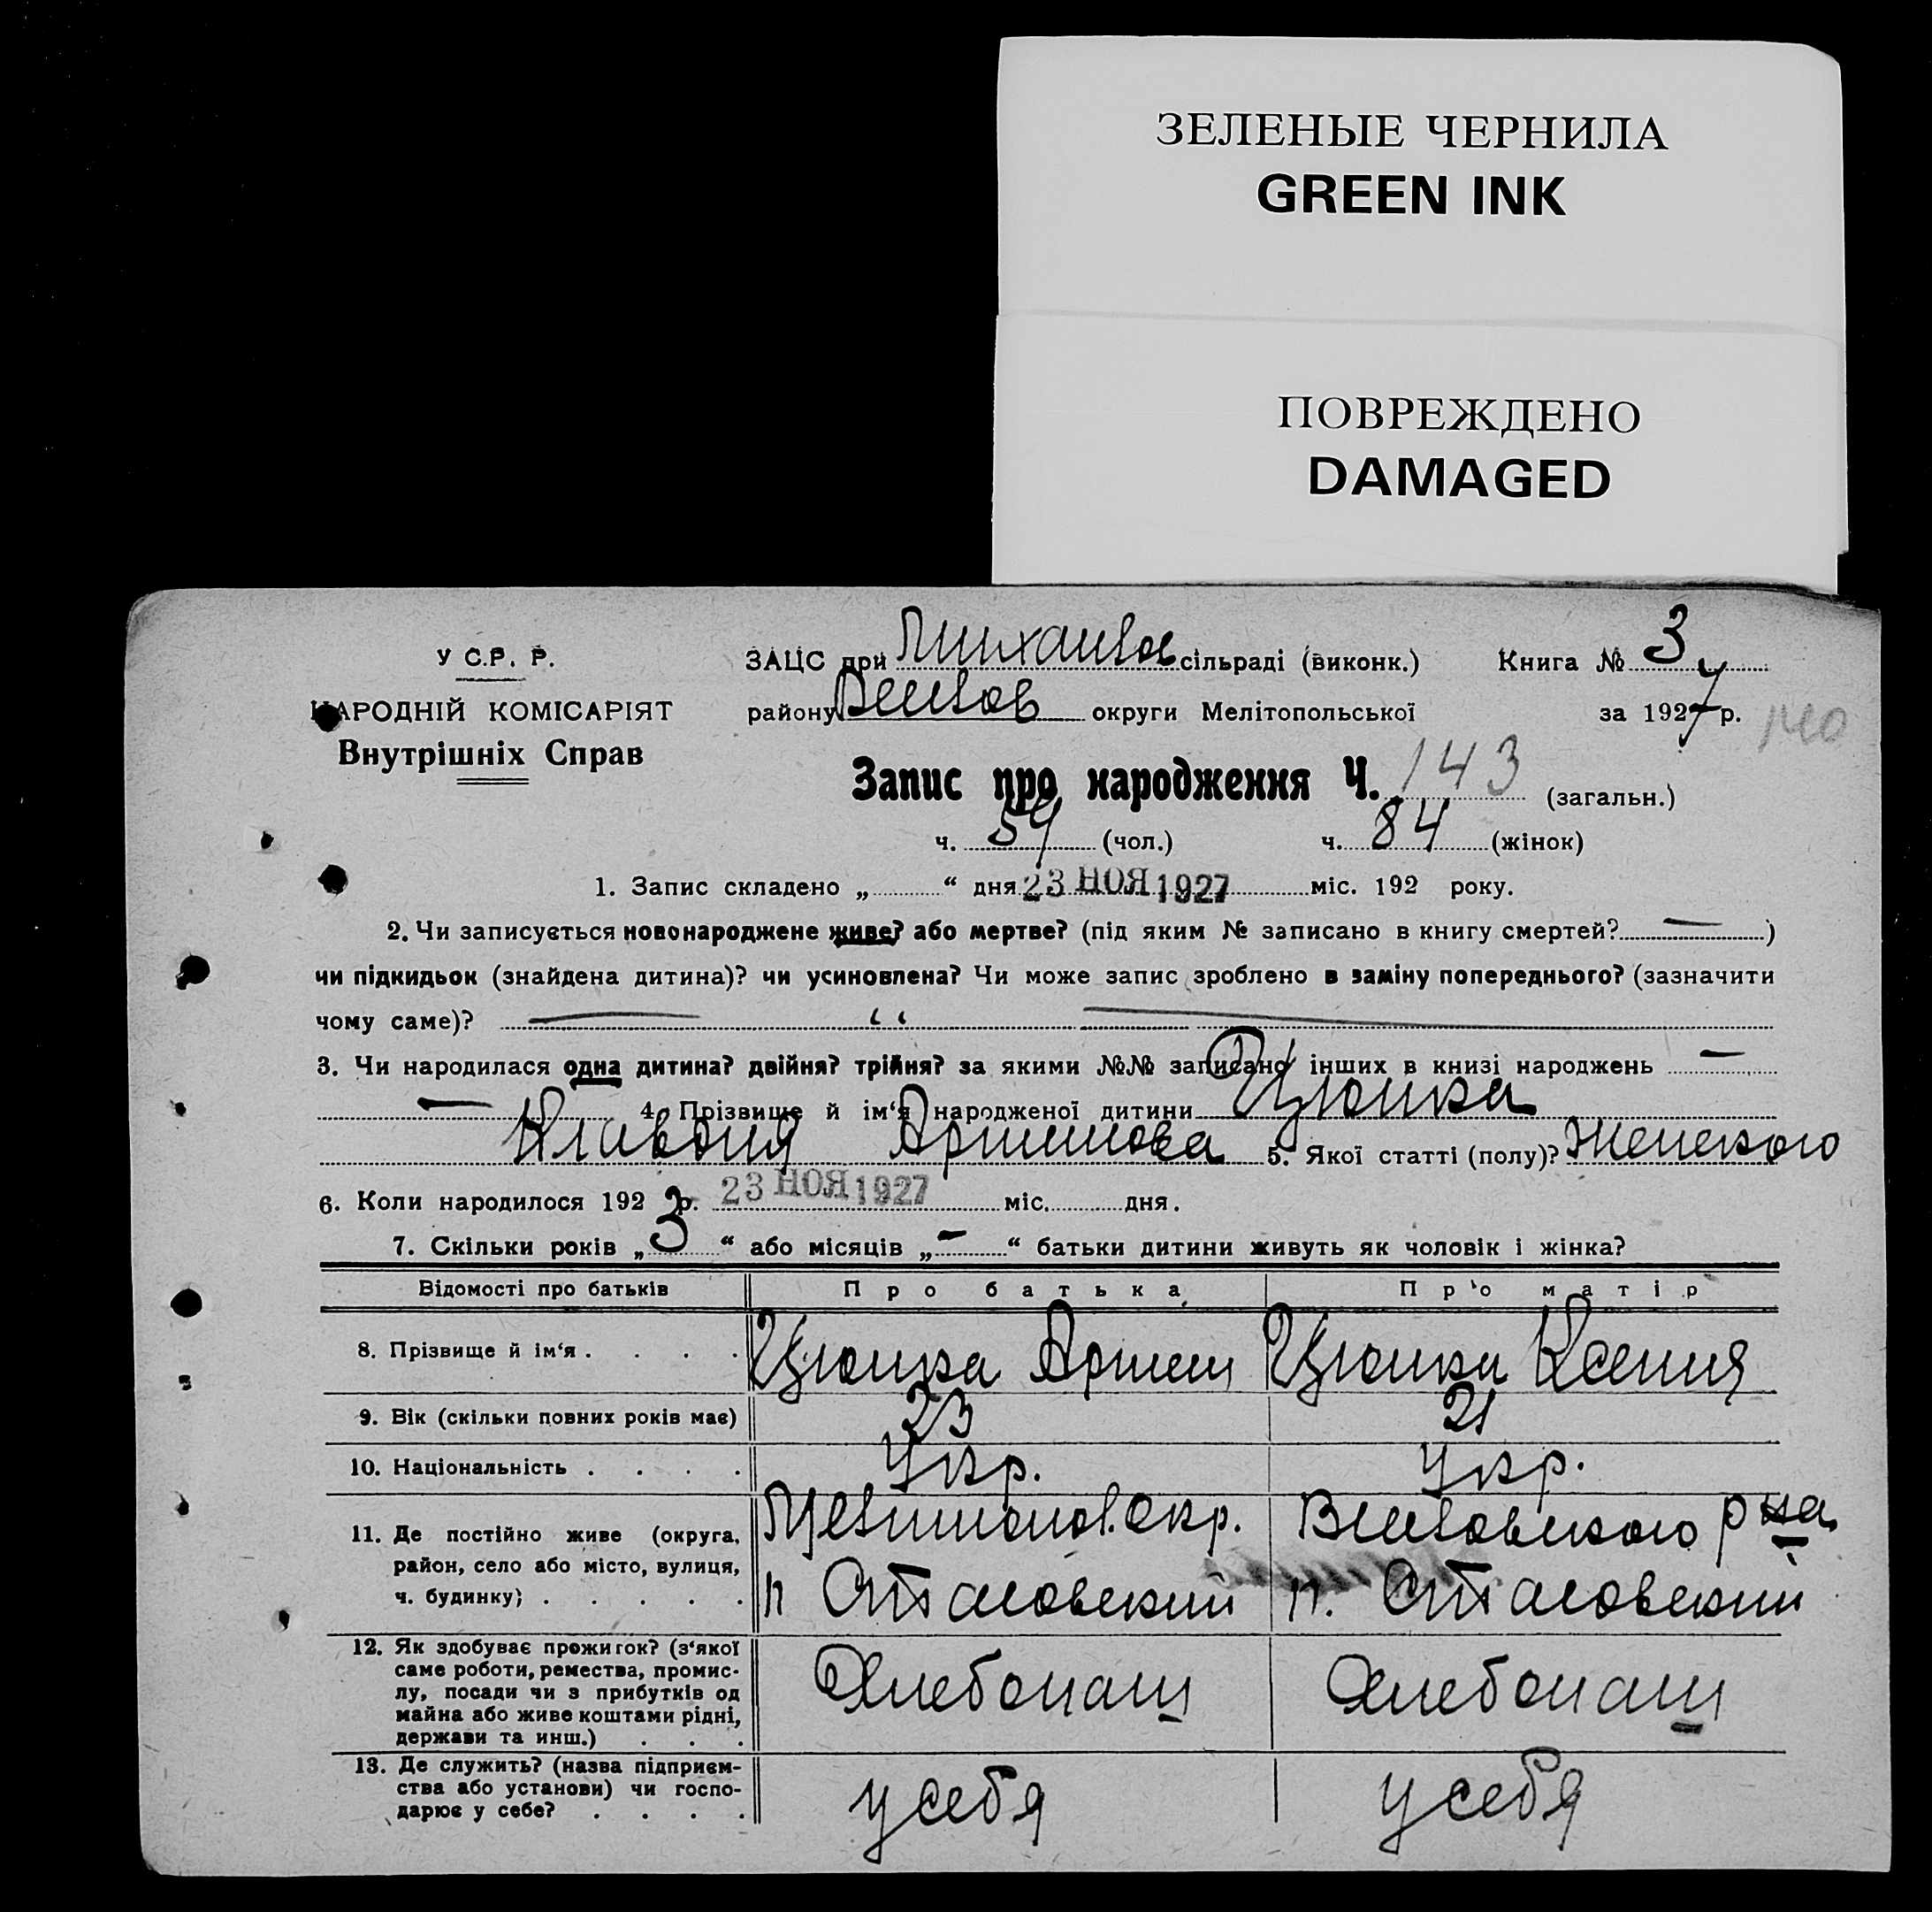 ЗЕЛЕНЫЕ ЧЕРНИЛА
GREEN INK
ПОВРЕЖДЕНО
DAMAGED
У С.Р. Р.
НАРОДНІЙ КОМІСАРІЯТ
Внутрішніх Справ
ЗАЦС при Михайлов сільраді (виконк.) Книга № 3
району округи Мелітопольської за 1927 р. 140
Запис про народження Ч. 143 (загальн.)
ч. 59 (чол.) ч. 84 (жінок)
1. Запис складено „ “ дня 23 НОЯ 1927 міс. 192 року.
2. Чи записується новонароджене живе? або мертве? (під яким № записано в книгу смертей? — )
чи підкидьок (знайдена дитина)? чи усиновлена? Чи може запис зроблено в заміну попереднього? (зазначити
чому саме)? —
3. Чи народилася одна дитина? двійня? трійня? за якими №№ записано інших в книзі народжень —
— 4. Прізвище й ім‘я народженої дитини Цюпка
Клавдия Артемова 5. Якої статті (полу)? Женского
6. Коли народилося 192 р. 23 НОЯ 1927 міс. дня.
7. Скільки років „ 3 “ або місяців „ — “ батьки дитини живуть як чоловік і жінка?
Відомості про батьків Про батька Про матір
8. Прізвище й ім‘я . . . . Цюпка Артем Цюпка Ксения
9. Вік (скільки повних років має) 23 21
10. Національність . . . . Укр. Укр.
11. Де постійно живе (округа, район, село або місто, вулиця, ч. будинку) . . . . . Мелитопол. окр. Веселовского р на
п Сталовский п. Сталовский
12. Як здобуває прожиток? (з‘якої саме роботи, ремества, промислу, посади чи з прибутків од майна або живе коштами рідні, держави та инш.) . . . Хлебопаш Хлебопаш
13. Де служить? (назва підприємства або установи) чи господарює у себе? . . . . у себя у себя